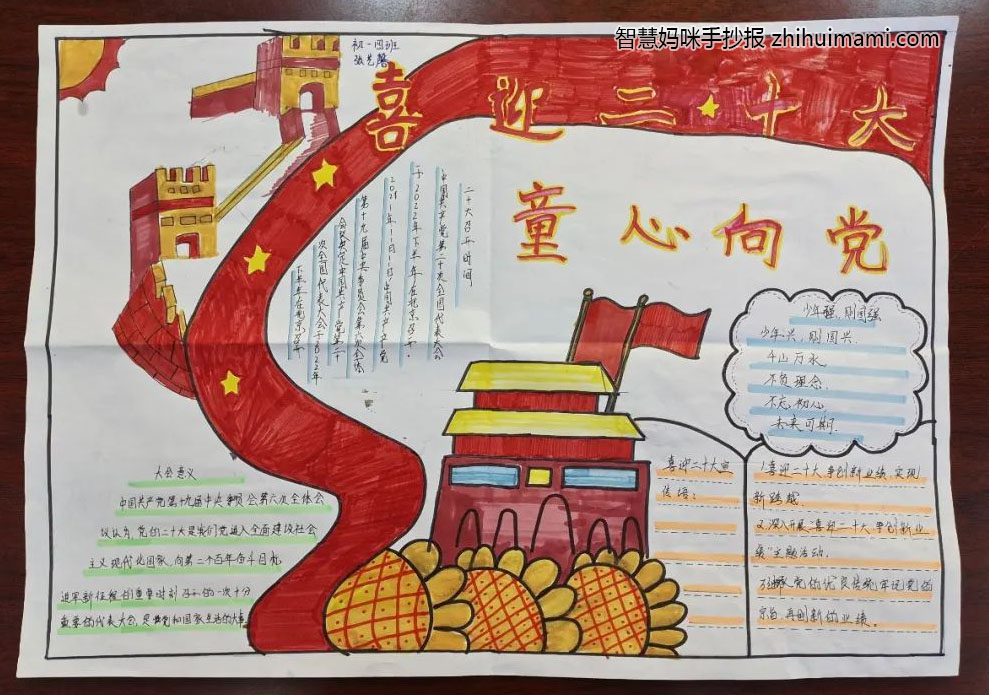 智慧妈咪手抄报 zhihuimami.com
初一四班
喜迎二十大
童心向党
二十大召开时间
中国共产党第二十次全国代表大会
于2022年下半年在北京召开。
2021年11月11日中国共产党
第十九届中央委员会第六次全体
会议决定中国共产党第二十
次全国代表大会于2022年
下半年在北京召开
少年强,则国强
少年兴,则国兴.
千山万水
不负理念.
不忘初心
未来可期.
大会意义
中国共产党第十九届中央委员会第六次全体会
议认为,党的二十大是我们党进入全面建设社会
主义现代化国家,向第二个百年奋斗目标
进军新征程的重要时刻召开的一次十分
重要的代表大会,是党和国家生活的大事
喜迎二十大宣
传语:
1.喜迎二十大,争创新业绩,实现
新跨越.
2.深入开展"喜迎二十大,争创新业
绩"主题活动.
3.继承党的优良传统,牢记党的
宗旨,再创新的业绩。